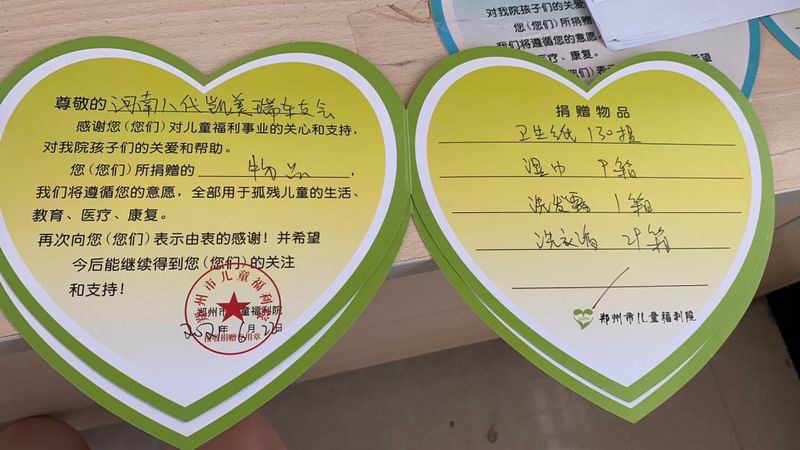 尊敬的河南八代凯美瑞车友会
感谢您(您们)对儿童福利事业的关心和支持,
对我院孩子们的关爱和帮助。
您(您们)所捐赠的 物品 ,
我们将遵循您的意愿，全部用于孤残儿童的生活、
教育、医疗、康复。
再次向您(您们)表示由衷的感谢！并希望
今后能继续得到您(您们)的关注
和支持！
郑州市儿童福利院
2021年6月2日
郑州市儿童福利院
接收捐赠专用章
捐赠物品
卫生纸 130提
湿巾 9箱
洗发露 1箱
洗衣液 29箱
郑州市儿童福利院
对我院孩子们的关爱
您(您们)所捐赠
我们将遵循您的意愿,
医疗、康复。
们)表示由衷
希望